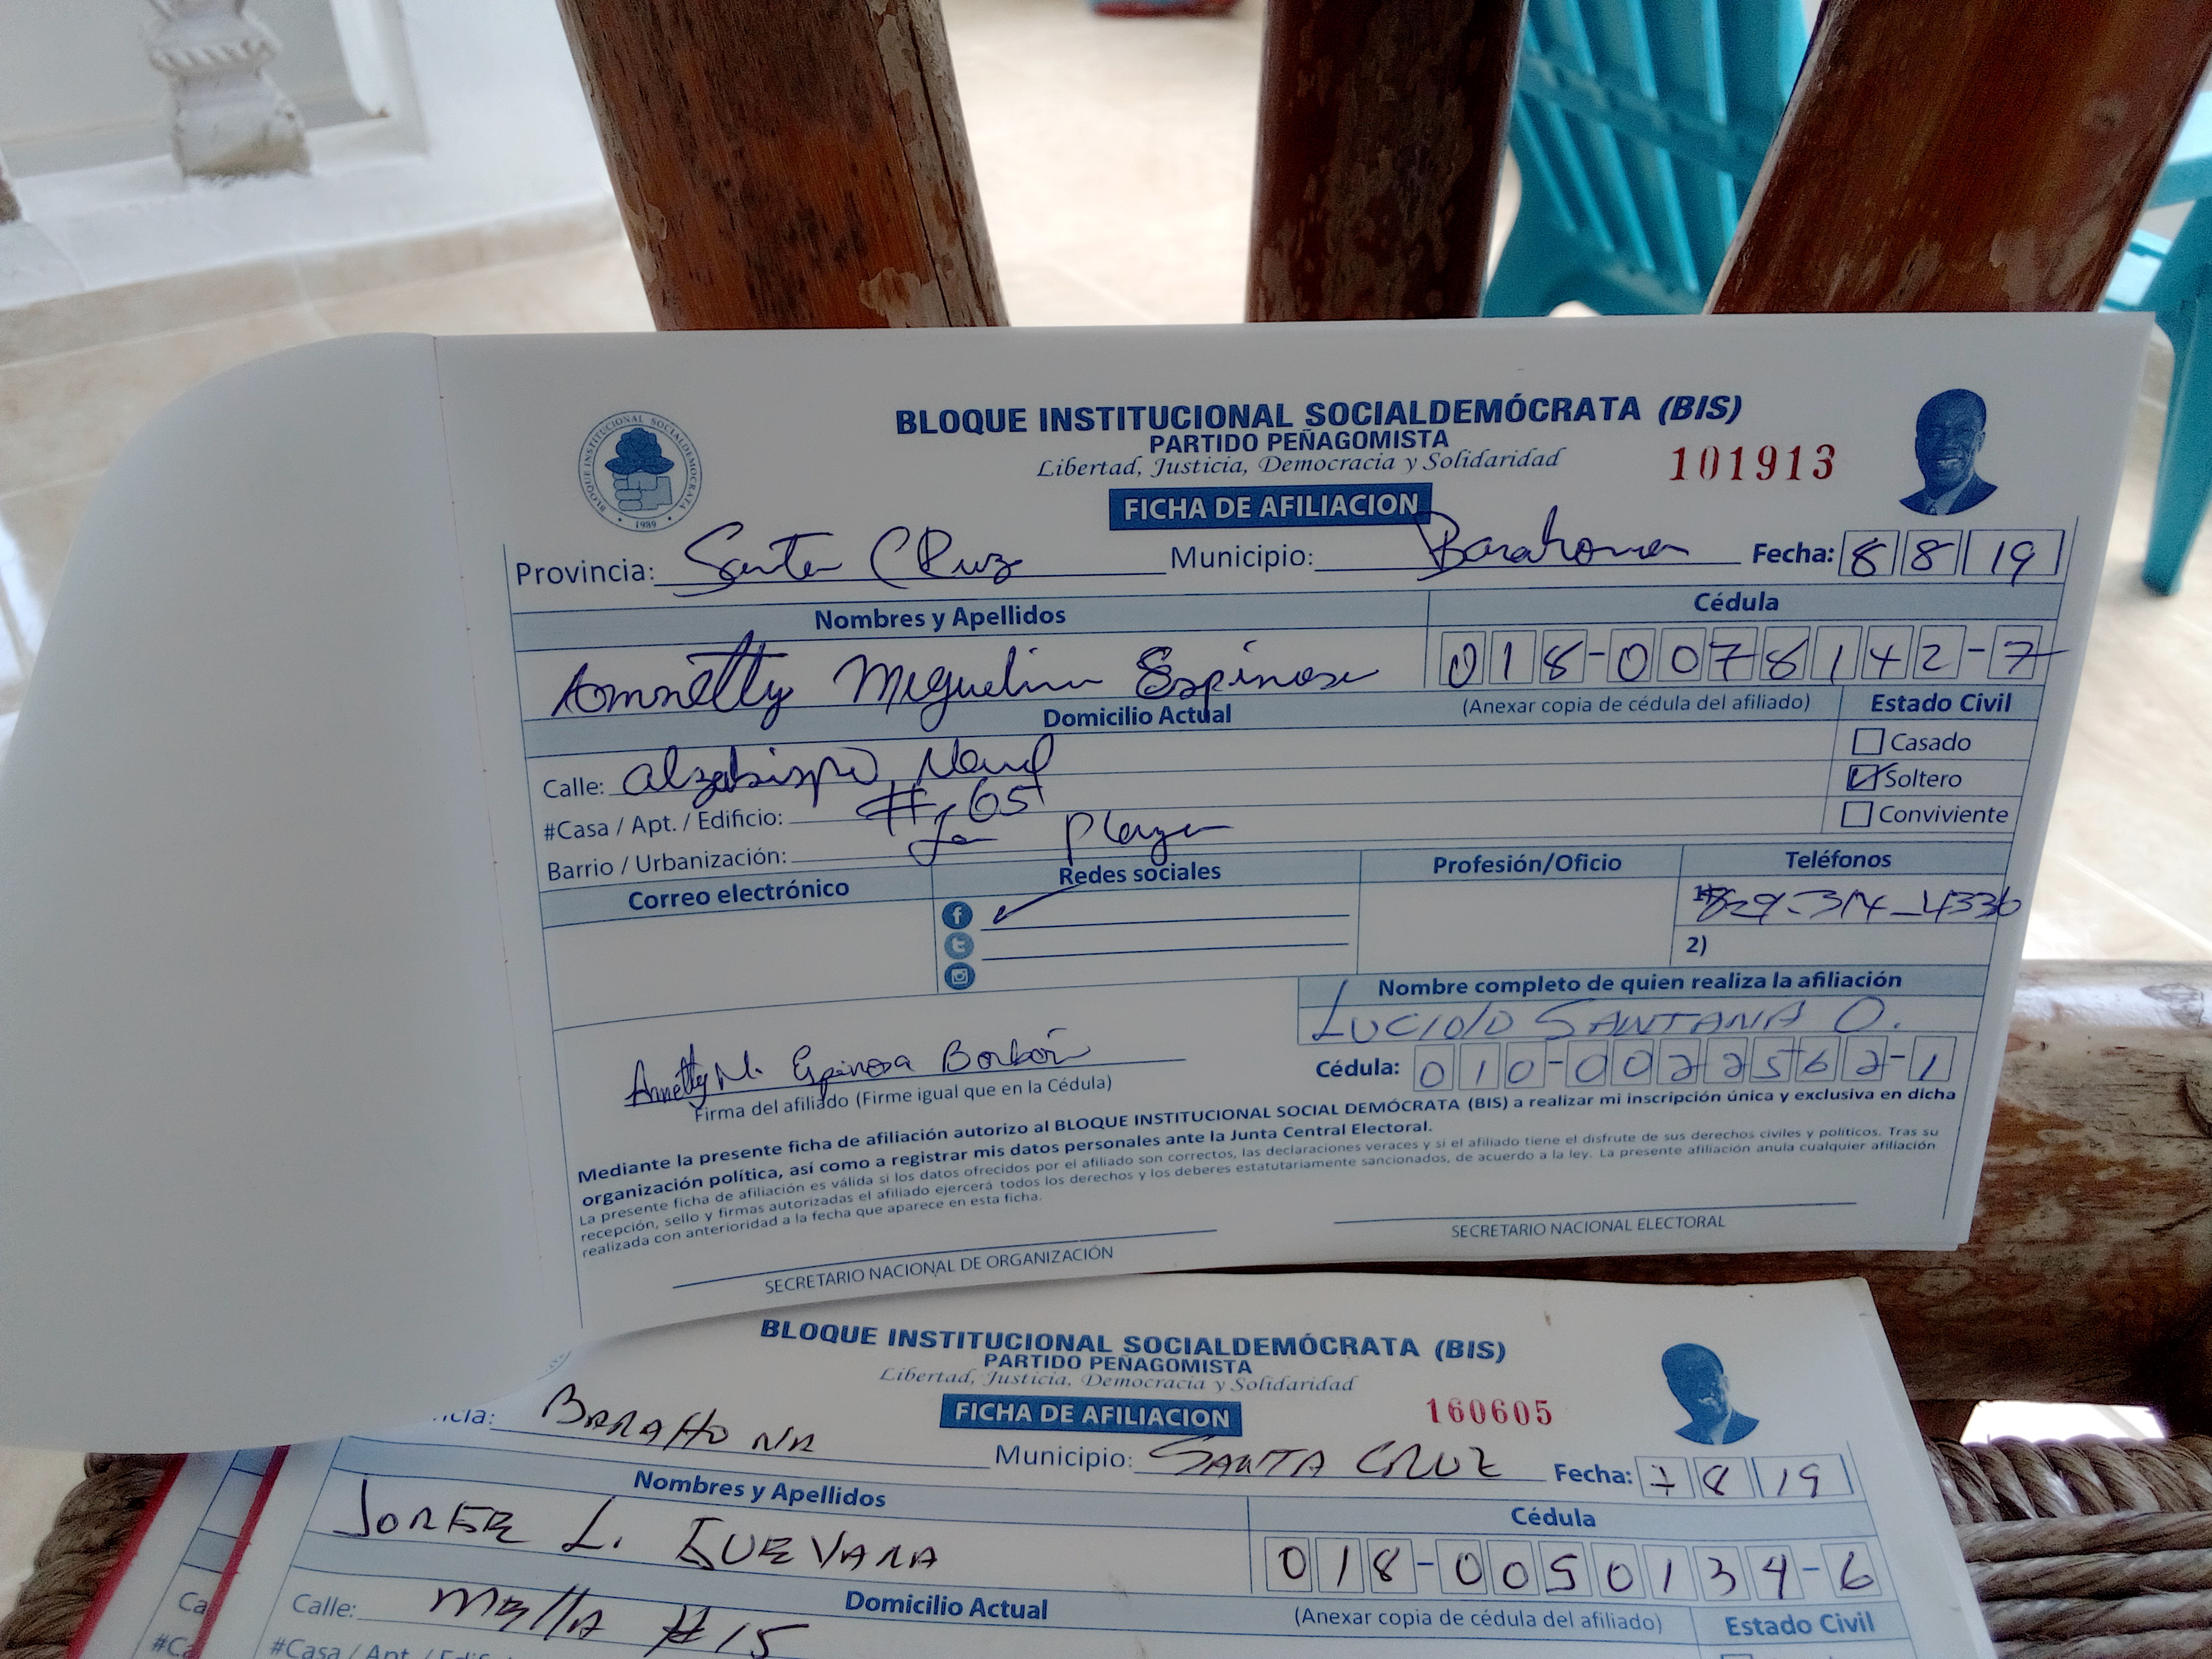 BLOQUE INSTITUCIONAL SOCIALDEMÓCRATA (BIS)
PARTIDO PEÑAGOMISTA
Libertad, Justicia, Democracia y Solidaridad
101913
BLOQUE INSTITUCIONAL SOCIALDEMOCRATA
1989
FICHA DE AFILIACION
Provincia: Santa Cruz Municipio: Barahona Fecha: 8 8 19
Nombres y Apellidos Cédula
Annetty Miguelina Espinosa 018-0078142-7
Domicilio Actual (Anexar copia de cédula del afiliado) Estado Civil
Casado
Calle: alzobispo Nouel
Soltero
#Casa / Apt. / Edificio: # 65
Conviviente
Barrio / Urbanización: La Playa
Correo electrónico Redes sociales Profesión/Oficio Teléfonos
829-314-4336
2)
Nombre completo de quien realiza la afiliación
LUCIOLO SANTANA O.
Annetty M. Espinosa Borbón
Cédula: 010-0022562-1
Firma del afiliado (Firme igual que en la Cédula)
Mediante la presente ficha de afiliación autorizo al BLOQUE INSTITUCIONAL SOCIAL DEMÓCRATA (BIS) a realizar mi inscripción única y exclusiva en dicha
organización política, así como a registrar mis datos personales ante la Junta Central Electoral.
La presente ficha de afiliación es válida si los datos ofrecidos por el afiliado son correctos, las declaraciones veraces y si el afiliado tiene el disfrute de sus derechos civiles y políticos. Tras su
recepción, sello y firmas autorizadas el afiliado ejercerá todos los derechos y los deberes estatutariamente sancionados, de acuerdo a la ley. La presente afiliación anula cualquier afiliación
realizada con anterioridad a la fecha que aparece en esta ficha.
SECRETARIO NACIONAL DE ORGANIZACIÓN SECRETARIO NACIONAL ELECTORAL
BLOQUE INSTITUCIONAL SOCIALDEMÓCRATA (BIS)
PARTIDO PEÑAGOMISTA
Libertad, Justicia, Democracia y Solidaridad
160605
FICHA DE AFILIACION
ncia: BARAHONA Municipio: SANTA CRUZ Fecha: 7 8 19
Nombres y Apellidos Cédula
JORGE L. GUEVARA 018-0050134-6
Domicilio Actual (Anexar copia de cédula del afiliado) Estado Civil
Calle: Mella #15
#Casa / Apt. / Edific
Ca
#Ca